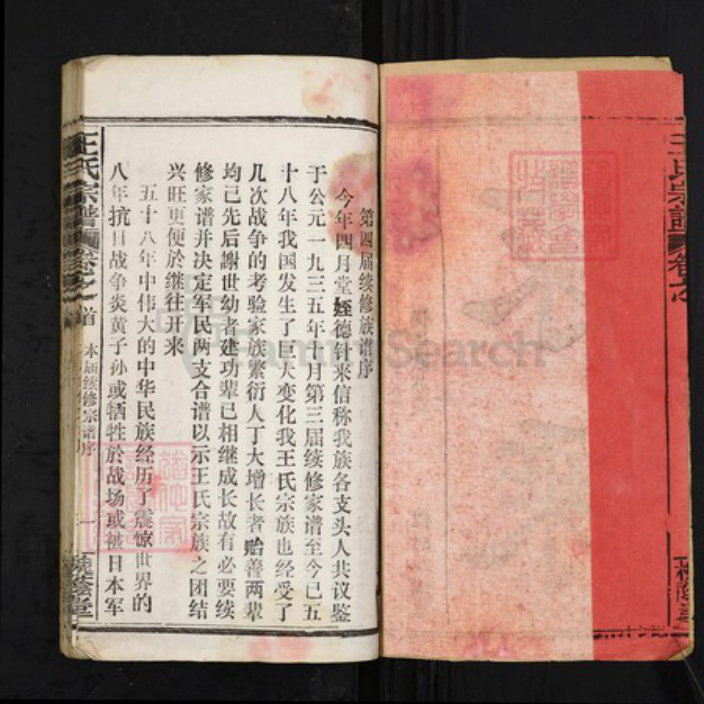 王氏宗譜
第四届续修族谱序
今年四月堂姪德针来信称我族各支头人共议鉴
于公元一九三五年十月第三届续修家谱至今已五
十八年我国发生了巨大变化我王氏宗族也经受了
几次战争的考验家族繁衍人丁大增长者贻善两辈
均已先后謝世幼者建功辈已相继成长故有必要续
修家谱并决定军民两支合谱以示王氏宗族之团结
兴旺更便於继往开来
五十八年中伟大的中华民族经历了震惊世界的
八年抗日战争炎黄子孙或牺牲於战场或被日本军
王氏宗譜
卷之首
本届续修宗谱序
一
槐蔭堂
FamilySearch